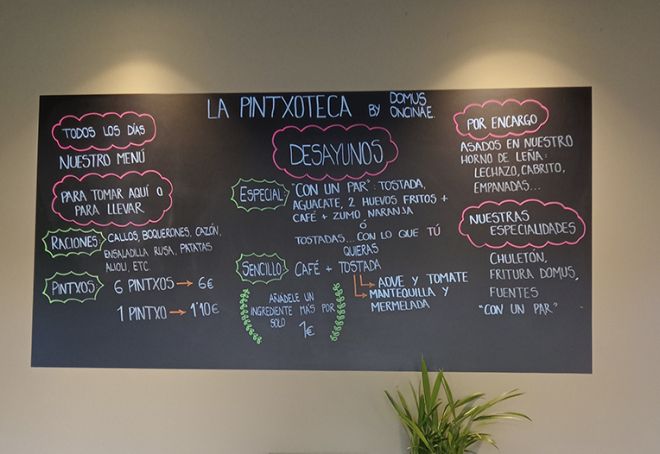 LA PINTXOTECA BY DOMUS ONCINAE.
TODOS LOS DÍAS
NUESTRO MENÚ
PARA TOMAR AQUÍ O
PARA LLEVAR
RACIONES
CALLOS, BOQUERONES, CAZÓN,
ENSALADILLA RUSA, PATATAS
ALIOLI, ETC
PINTXOS
6 PINTXOS → 6€
1 PINTXO → 1'10€
DESAYUNOS
ESPECIAL
"CON UN PAR": TOSTADA,
AGUACATE, 2 HUEVOS FRITOS +
CAFÉ + ZUMO NARANJA
Ó
TOSTADAS... CON LO QUE TÚ
QUIERAS
SENCILLO
CAFÉ + TOSTADA
AOVE Y TOMATE
MANTEQUILLA Y
MERMELADA
AÑÁDELE UN
INGREDIENTE MÁS POR
SOLO
1€
POR ENCARGO
ASADOS EN NUESTRO
HORNO DE LEÑA:
LECHAZO, CABRITO,
EMPANADAS...
NUESTRAS
ESPECIALIDADES
CHULETÓN,
FRITURA DOMUS,
FUENTES
"CON UN PAR"